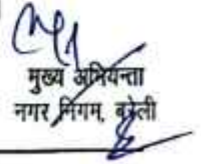 मुख्य अभियन्ता
नगर निगम, बरेली